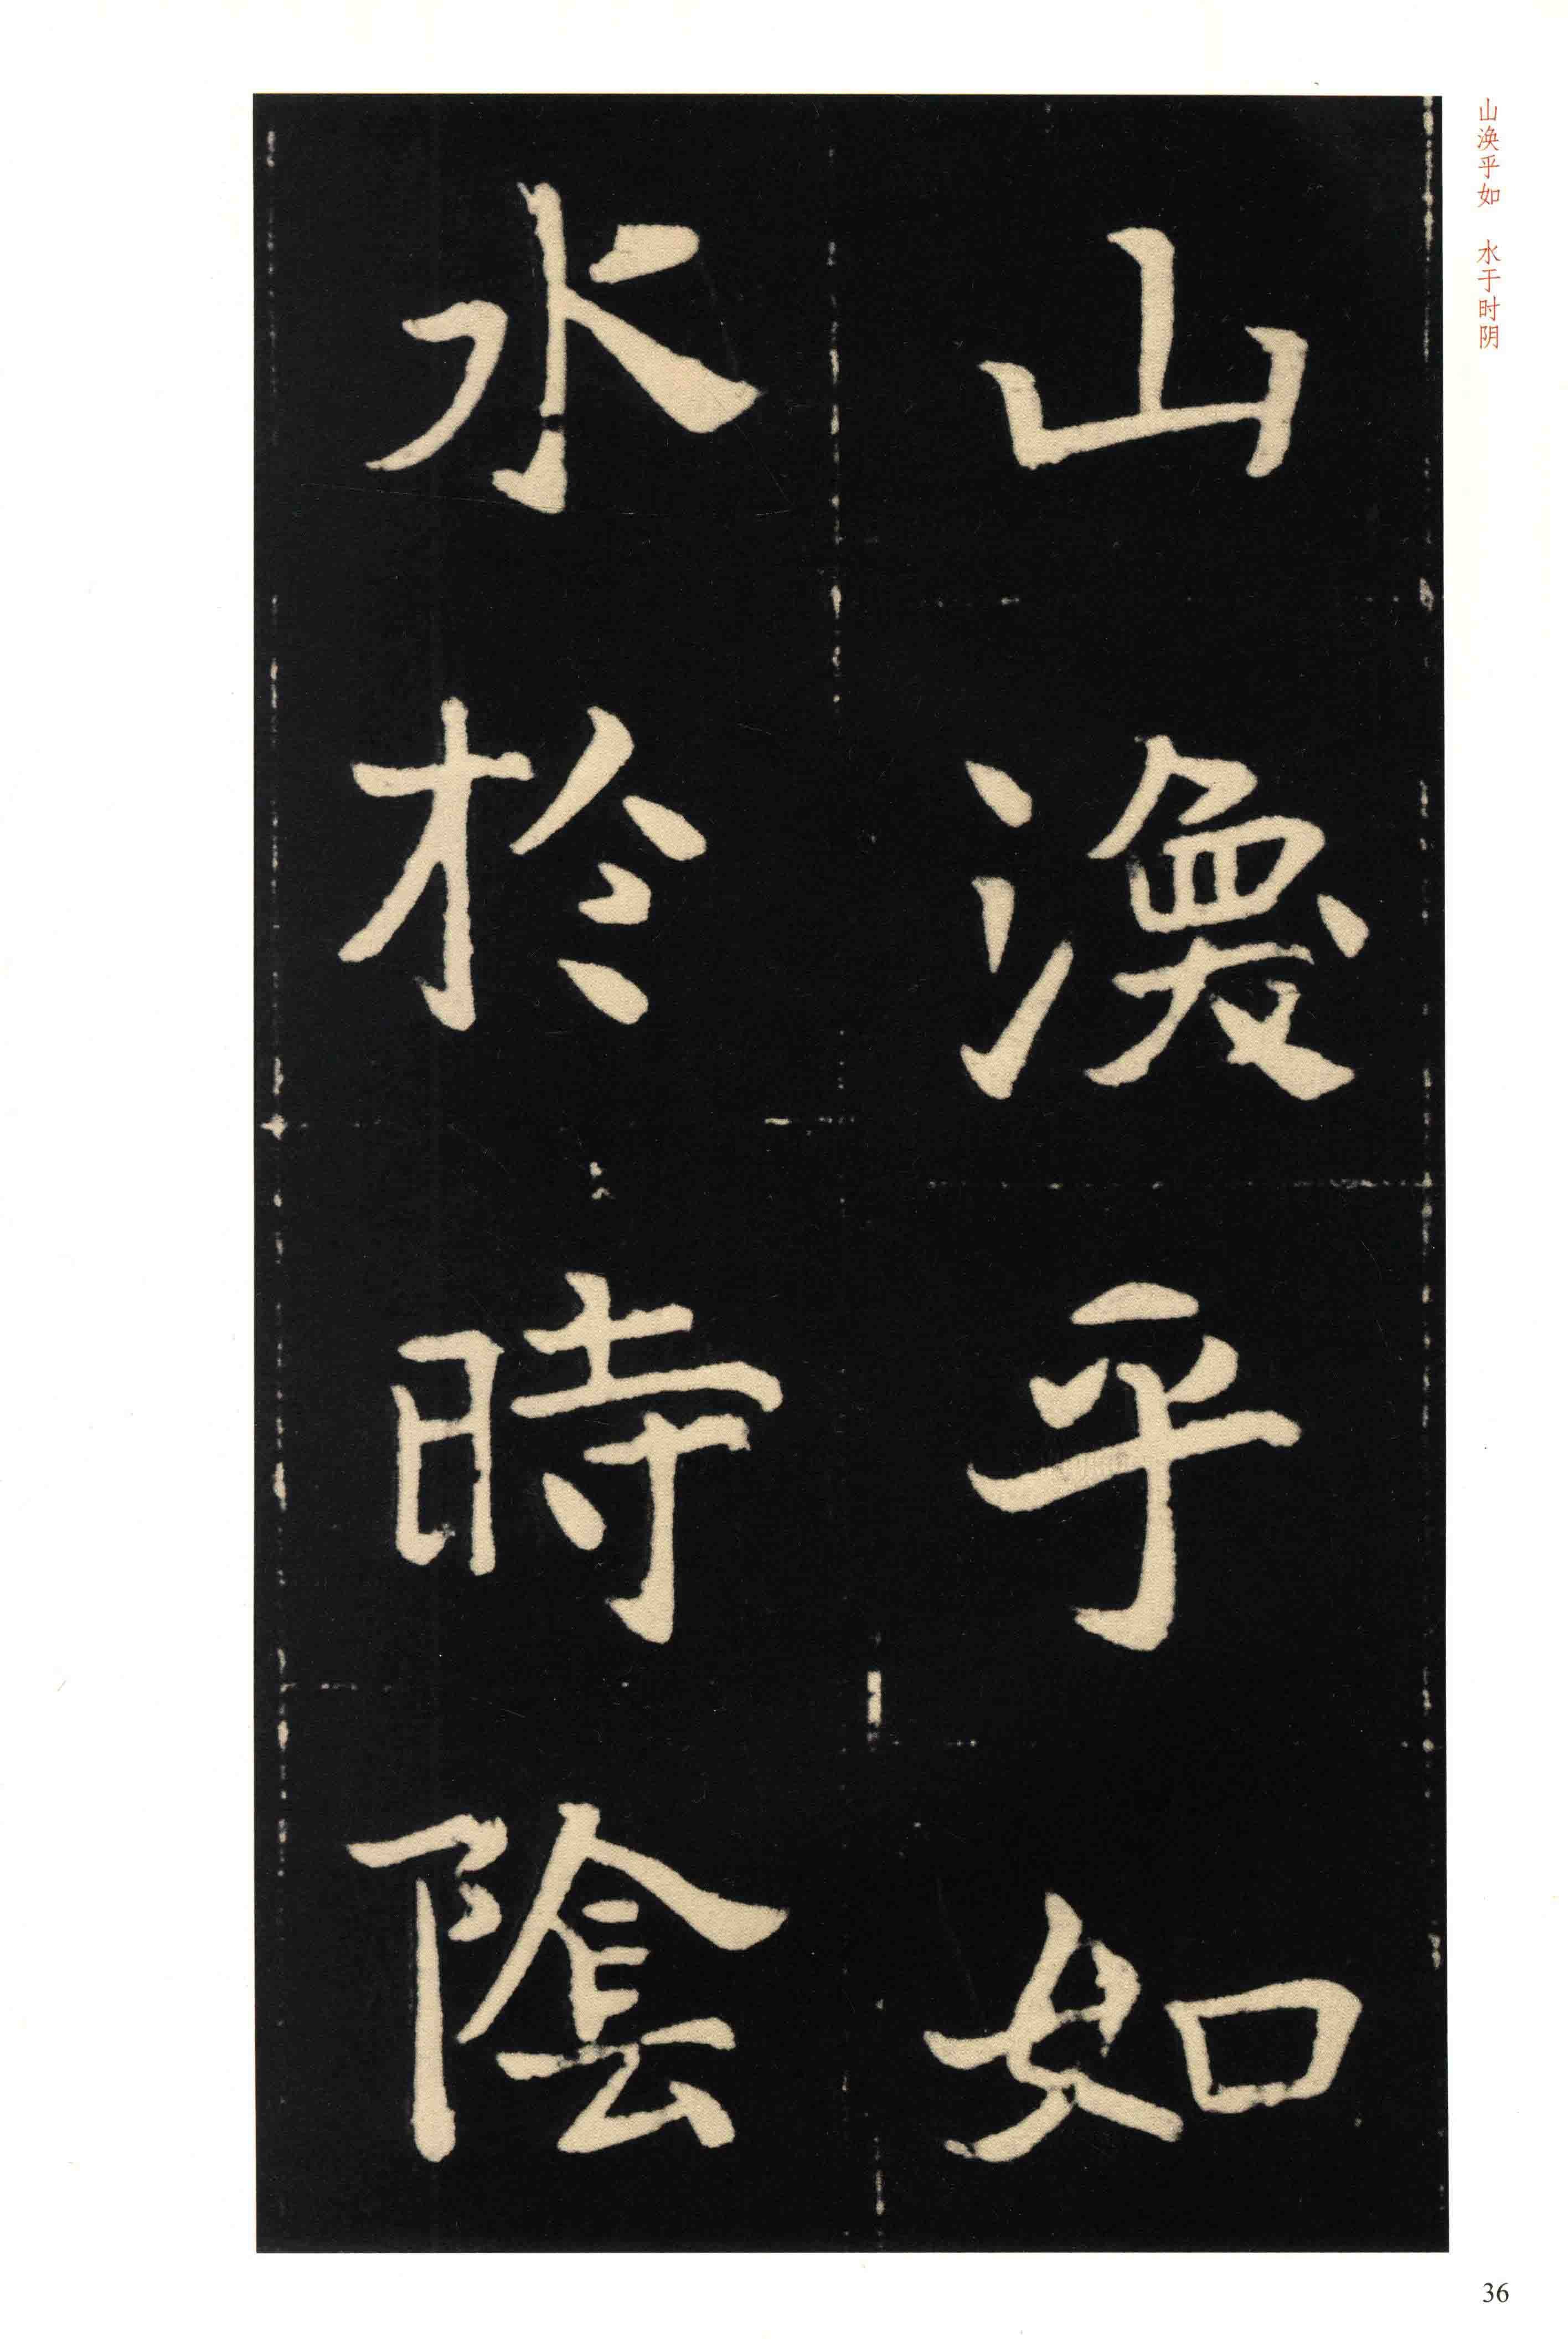 山渙乎如
水於時陰
山涣乎如 水于时阴
36